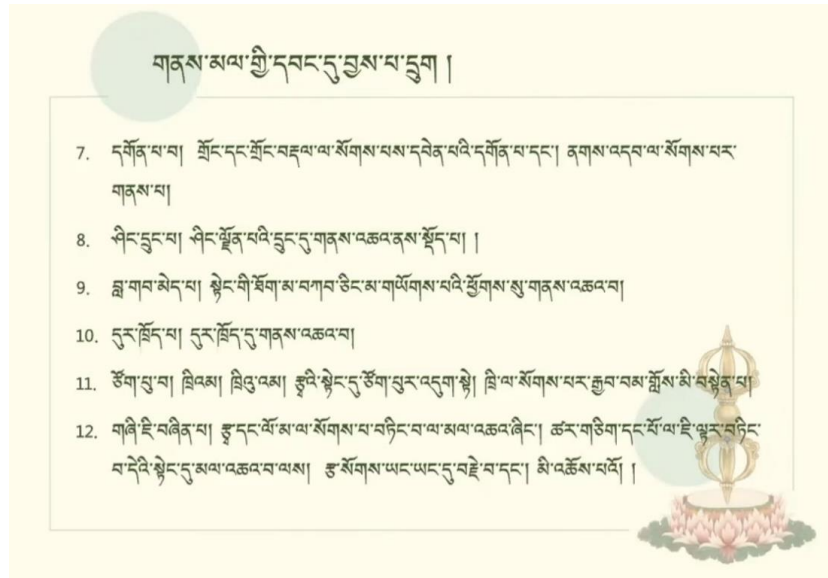 གནས་མལ་གྱི་དབང་དུ་བྱས་པ་དྲུག །
7. དགོན་པ་བ། གྲོང་དང་གྲོང་བརྡལ་ལ་སོགས་པས་དབེན་པའི་དགོན་པ་དང་། ནགས་འདབ་ལ་སོགས་པར་
གནས་པ།
8. ཤིང་དྲུང་པ། ཤིང་ལྗོན་པའི་དྲུང་དུ་གནས་འཆའ་ནས་སྡོད་པ། །
9. བླ་གབ་མེད་པ། སྟེང་གི་ཐོག་མ་བཀབ་ཅིང་མ་གཡོགས་པའི་ཕྱོགས་སུ་གནས་འཆའ་བ།
10. དུར་ཁྲོད་པ། དུར་ཁྲོད་དུ་གནས་འཆའ་བ།
11. ཙོག་པུ་བ། ཁྲིའམ། ཁྲིའུ་འམ། རྩྭའི་སྟེང་དུ་ཙོག་པུར་འདུག་སྟེ། ཁྲི་ལ་སོགས་པར་རྒྱབ་བམ་གློས་མི་བསྟེན་པ།
12. གཞི་ཇི་བཞིན་པ། རྩྭ་དང་ལོ་མ་ལ་སོགས་པ་བཏིང་བ་ལ་མལ་འཆའ་ཞིང་། ཚར་གཅིག་དང་པོ་ལ་ཇི་ལྟར་བཏིང་
བ་དེའི་སྟེང་དུ་མལ་འཆའ་བ་ལས། རྩྭ་སོགས་ཡང་ཡང་དུ་བརྗེ་བ་དང་། མི་འཆོས་པའོ། །